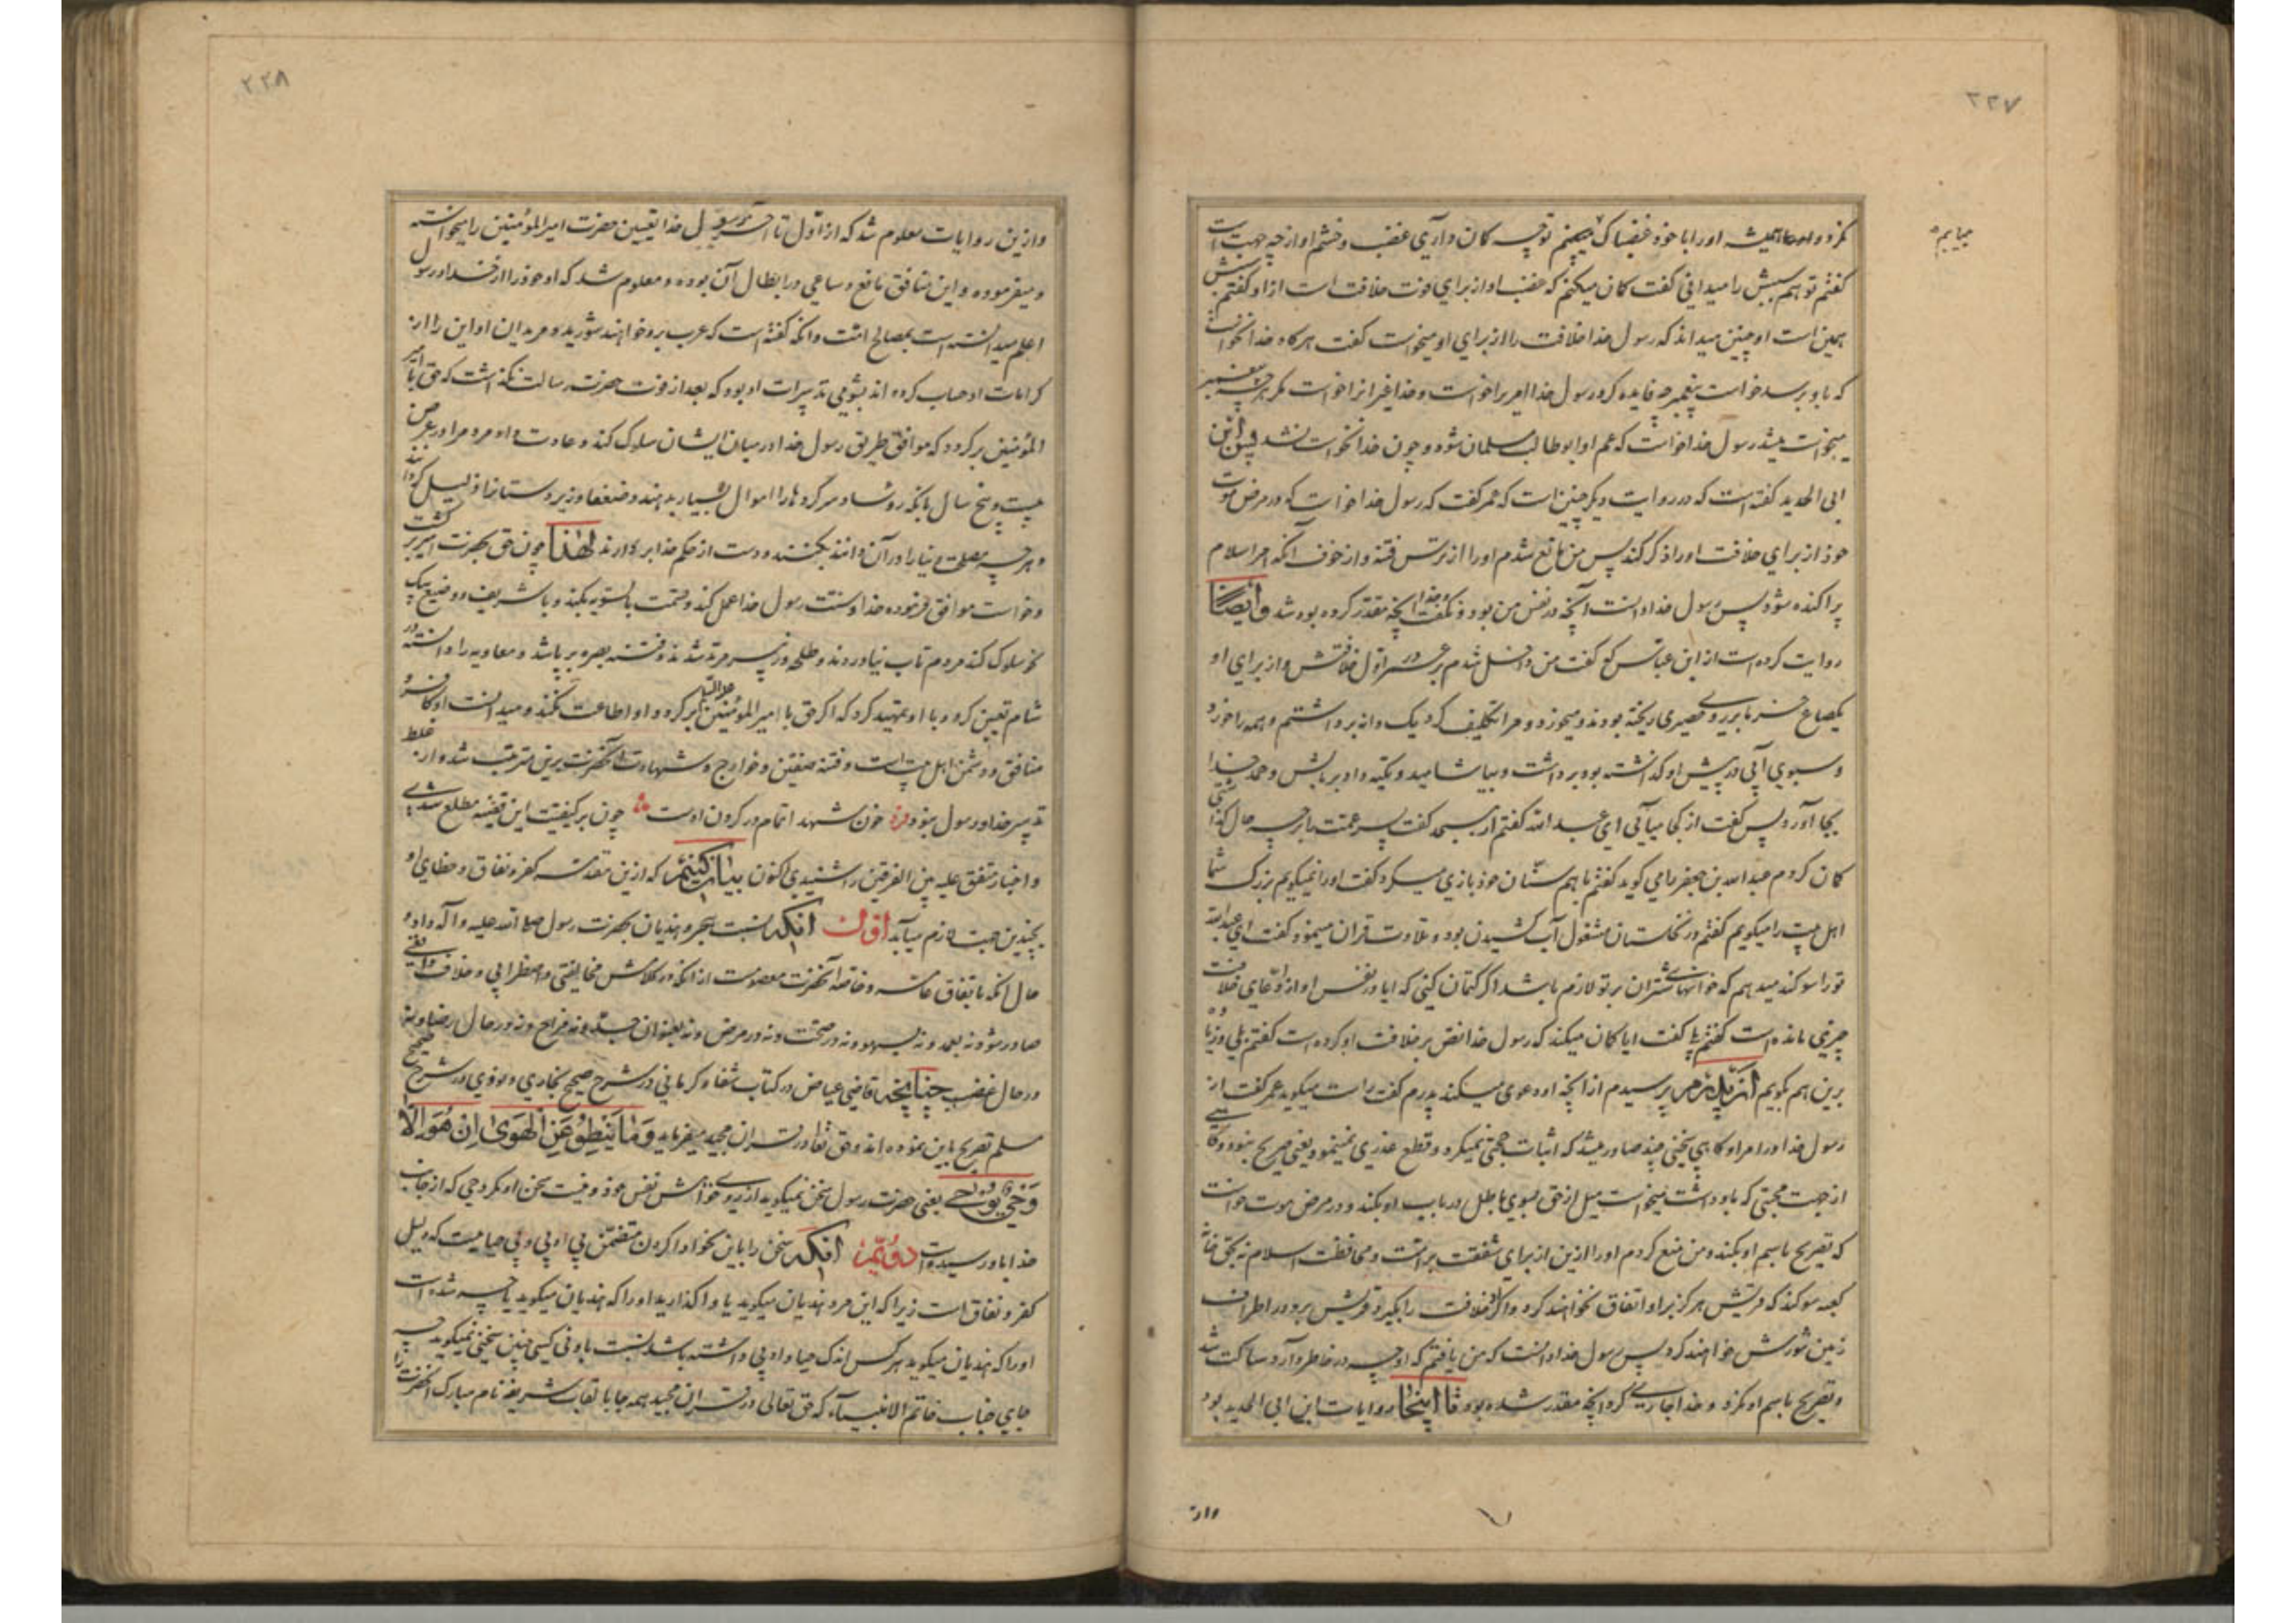 ۲۲۷
نکرد و همیشه او را با خود غضبناک می‌بینم تو چه کان داری غضب و خشم او از چه جهت است
میابیم
کفتم تو هم سببش را میدانی کفت کان میکنم که غضب او از برای فوت خلافت است از او کفتم سببش
همین است او چنین میداند که رسول خدا خلافت را از برای او میخواست کفت هرکاه خدا نخواست
که باو برسد خواست پیغمبر چه فایده کرد رسول خدا امریرا خواست و خدا غیر انرا خواست مکر هرچه پیغمبر
میخواست میشد رسول خدا خواست که عم او ابو طالب مسلمان شود و چون خدا نخواست نشد پس ابن
ابی الحدید کفته است که در روایت دیکر چنین است که عمر کفت که رسول خدا خواست که در مرض موت
خود از برای خلافت او را ذکر کند پس من مانع شدم او را از ترس فتنه و از خوف آنکه امر اسلام
پراکنده شود پس رسول خدا دانست آنچه در نفس من بود و نکفت و خدا آنچه مقدر کرده بود شد وأیضا
روایت کرده است از ابن عباس که کفت من داخل شدم بر عمر در اول خلافتش و از برای او
یکصاع خرما بر روی حصیری ریخته بودند و میخورد و مرا تکلیف کرد یک دانه برداشتم و همه را خورد
و سبوی آبی در پیش او کذاشته بود برداشت و بیاشامید و تکیه داد بر بالش و حمد خدا
بجا آورد پس کفت از کجا میآئی ای عبد الله کفتم از مسجد کفت پسر عمت با بر چه حال کذاشتی
کان کردم عبدالله بن جعفر را می کوید کفتم با هم سنان خود بازی میکرد کفت او را نمیکویم بزرک شما
اهل بیت را میکویم کفتم در نخلستان مشغول آب کشیدن بود و تلاوت قران مینمود کفت ای عبدالله
تو را سوکند میدهم که خونهای شتران بر تو لازم باشد اکر کتمان کنی که ایا در نفس او از ادعای خلافت
چیزی مانده است کفتم بلی کفت ایا کان میکند که رسول خدا نص بر خلافت او کرده است کفتم بلی و زیاده
برین هم بکویم از پدرم پرسیدم از انچه او دعوی میکند پدرم کفت راست میکوید عمر کفت از
رسول خدا در امر او کاهی سخنی چند صادر میشد که اثبات حجتی نمیکرد و قطع عذری نمینمود یعنی صریح نبود و کاهی
از جهت محبتی که باو داشت میخواست میل از حق بسوی باطل در باب او بکند و در مرض موت خواست
که تصریح باسم او بکند و من منع کردم او را ازین از برای شفقت بر امت و محافظت اسلام نه بحق خانه
کعبه سوکند که قریش هرکز بر او اتفاق نخواهند کرد و اکر او خلافت را بکیرد قریش بر او در اطراف
زمین شورش خواهند کرد پس رسول خدا دانست که من یافتم که او چه در خاطر دارد ساکت شد
و تصریح باسم او نکرد و خدا جاری کرد انچه مقدر شده بود تا اینجا روایات ابن ابی الحدید بود
واز
۲۲۸
وازین روایات معلوم شد که از اول تا آخر رسول خدا تعیین حضرت امیر المؤمنین را میخواسته
و میفرموده و این منافق مانع و ساعی در ابطال آن بوده و معلوم شد که او خود را از خدا و رسول
اعلم میدانسته است بمصالح امت و انکه کفته است که عرب برو خواهند شورید و مریدان او این را از
کرامات او حساب کرده اند بشومی تدبیرات او بود که بعد از فوت حضرت رسالت نکذاشت که حق با امیر
المؤمنین برکردد که موافق طریق رسول خدا در میان ایشان سلوک کند و عادت داد مردم را در عرض
بیست و پنج سال بانکه رؤسا و سرکردها را اموال بسیار بدهند و ضعفا و زیردستانرا ذلیل کردانند
و هر چه مصلحت دنیا را در آن دانند بکنند و دست از حکم خدا بردارند لهذا چون حق بحضرت امیر برکشت
و خواست موافق فرموده خدا و سنت رسول خدا عمل کند و قسمت بالسویه بکند و با شریف و وضیع بیک
نحو سلوک کند مردم تاب نیاوردند و طلحه و زبیر مرتد شدند و فتنه بصره بر پا شد و معاویه را دانسته در
شام تعیین کرد و با او تمهید کرد که اکر حق با امیر المؤمنین علیه السلام برکردد او اطاعت نکند و میدانست او کافر و
منافق و دشمن اهل بیت است و فتنه صفین و خوارج و شهادت آنحضرت برین مترتب شد و از غلط
تدبیر خدا و رسول نبود فرد خون شهدا تمام در کردن اوست چون بر کیفیت این قضیه مطلع شدی
و اخبار متفق علیه بین الفریقین را شنیدی اکنون بیان کنیم که ازین مقدمه کفر و نفاق و خطای او
بچندین جهت لازم میآید اول انکه نسبت هجر و هذیان بحضرت رسول صلی الله علیه و آله داد و
حال انکه باتفاق عامه و خاصه آنحضرت معصومست از انکه در کلامش مخالفتی و اضطرابی و خلاف واقعی
صادر شود نه بعمد و نه بسهو و نه در صحت و نه در مرض و نه بعنوان جد و نه مزاح و نه در حال رضا و نه
در حال غضب چنانچه قاضی عیاض در کتاب شفا و کرمانی در شرح صحیح بخاری و نووی در شرح صحیح
مسلم تصریح باین نموده اند و حق تعالی در قران مجید میفرماید وَمَا یَنْطِقُ عَنِ الْهَوٰی اِنْ هُوَ اِلَّا
وَحْیٌ یُوحٰی یعنی حضرت رسول سخن نمیکوید از روی خواهش نفس خود و نیست سخن او مکر وحی که از جانب
خدا باو رسیده است دویم انکه سخن را باین نحو ادا کردن متضمن بی ادبی و بی حیاییست که دلیل
کفر و نفاق است زیرا که این مرد هذیان میکوید یا واکذارید او را که هذیان میکوید یا چه شده است
او را که هذیان میکوید هر کس اندک حیا و ادبی داشته باشد نسبت بادنی کسی چنین سخنی نمیکوید چه
جای جناب خاتم الانبیاء که حق تعالی در قران مجید همه جا بالقاب شریفه نام مبارک انحضرت را